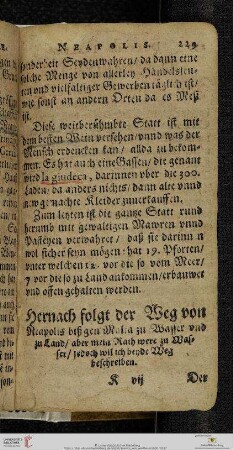 NEAPOLIS. 229
sonderheit Seydenwahren/ da dann eine
solche Menge von allerley Händelsleu-
ten vnd vielfaltiger Gewerben täglich ist/
wie sonst an andern Orten da es Meß
ist.
Diese weitberühmbte Statt ist mit
dem besten Wein versehen/ vnnd was der
Mensch erdencken kan/ allda zu bekom-
men. Es hat auch eine Gassen/ die genant
wird la giudeca, darinnen vber die 200.
Läden/ da anders nichts/ dann alte vnnd
newgemachte Kleider zuuerkauffen.
Zum letzten ist die gantze Statt rund
herumb mit gewaltigen Mawren vnnd
Pasteyen verwahret/ daß sie darinn
wol sicher seyn mögen: hat 19. Pforten/
vnter welchen 12. vor die so vom Meer/
7 vor die so zu Land ankommen/ erbauwet
vnd offen gehalten werden.
Hernach folgt der Weg von
Neapolis biß gen Malta zu Wasser vnd
zu Land/ aber mein Rath were zu Was-
ser/ jedoch wil ich beyde Weg
beschreiben.
K vij Der